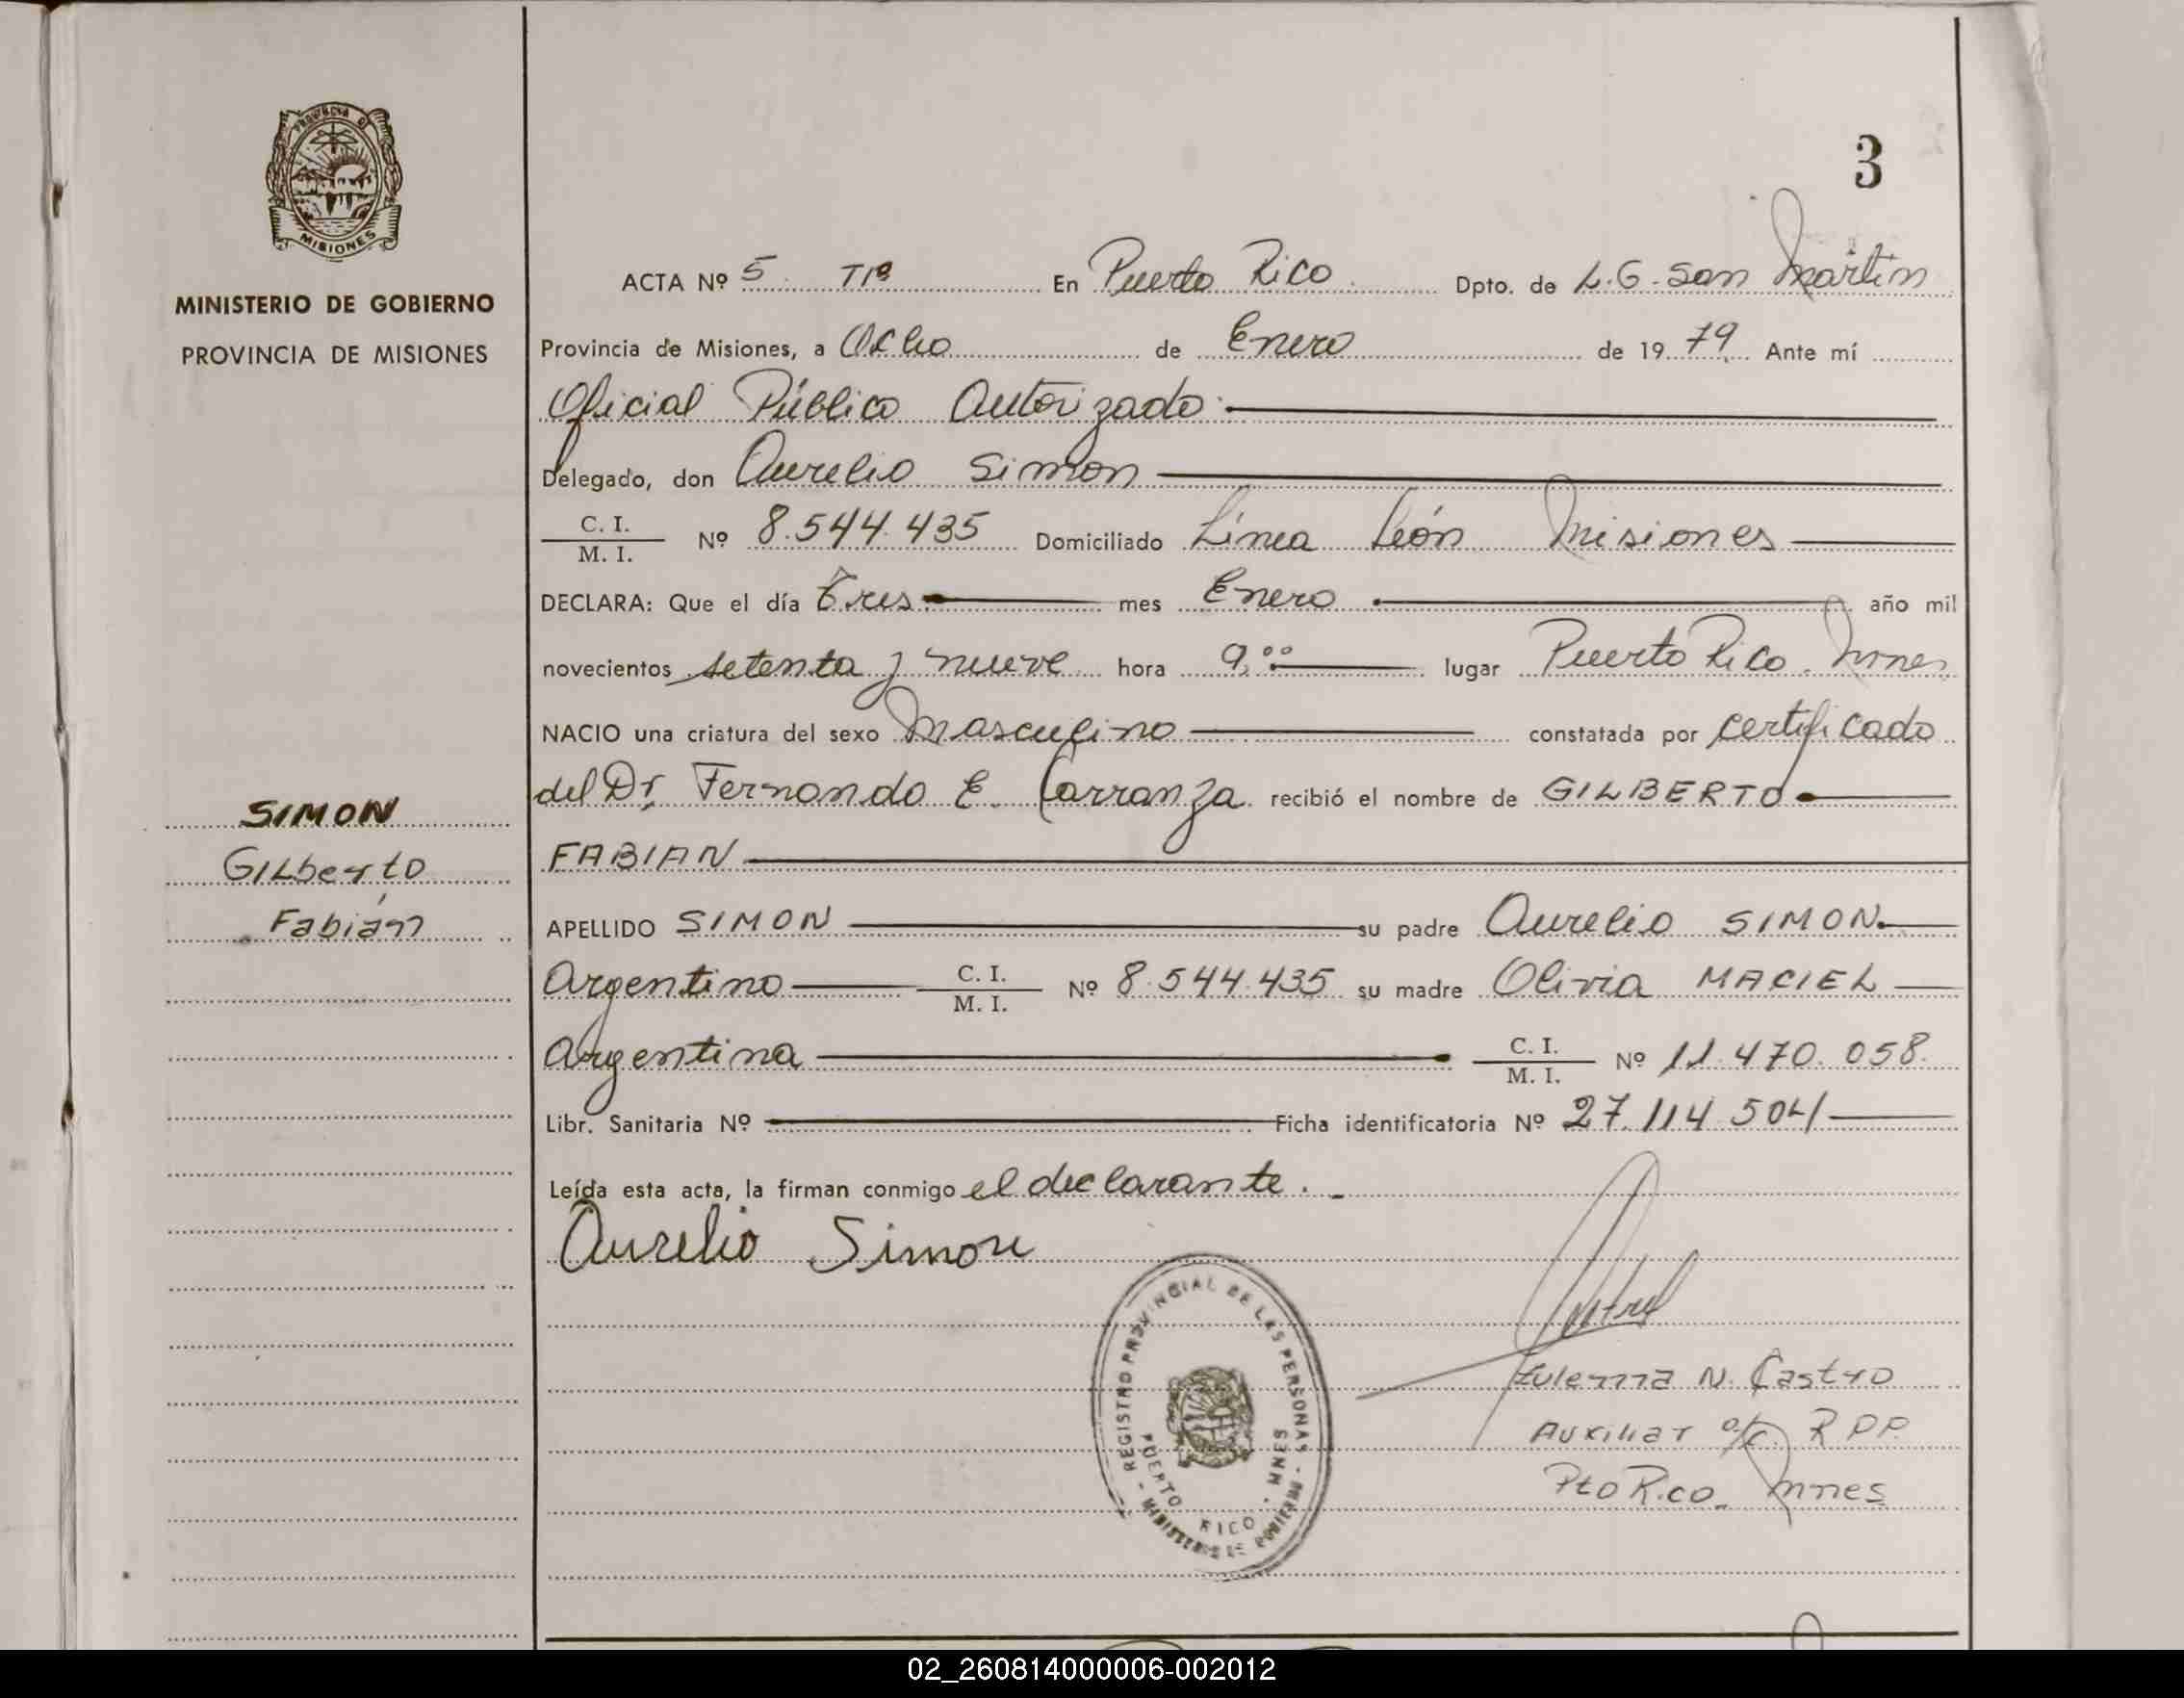 PROVINCIA DE
MISIONES
MINISTERIO DE GOBIERNO
PROVINCIA DE MISIONES
SIMON
GILberto
Fabián
3
ACTA Nº 5 Tº1º En Puerto Rico Dpto. de L.G. San Martin
Provincia de Misiones, a Ocho de Enero de 1979 Ante mí
Oficial Público Autorizado
Delegado, don Aurelio Simon
C. I. / M. I. Nº 8.544.435 Domiciliado Línea León Misiones
DECLARA: Que el día Tres mes Enero año mil
novecientos setenta y nueve hora 9,00 lugar Puerto Rico. Mnes
NACIO una criatura del sexo Masculino constatada por certificado
del Dr. Fernando E. Carranza recibió el nombre de GILBERTO
FABIAN
APELLIDO SIMON su padre Aurelio SIMON
Argentino C. I. / M. I. Nº 8.544.435 su madre Olivia MACIEL
Argentina C. I. / M. I. Nº 11.470.058
Libr. Sanitaria Nº Ficha identificatoria Nº 27.114.504
Leída esta acta, la firman conmigo el declarante.
Aurelio Simon
REGISTRO PROVINCIAL DE LAS PERSONAS - MINISTERIO DE GOBIERNO -
PUERTO RICO - MNES
Zulema N. Castro
Auxiliar a/c. RPP
Pto Rico. Mnes
02_260814000006-002012